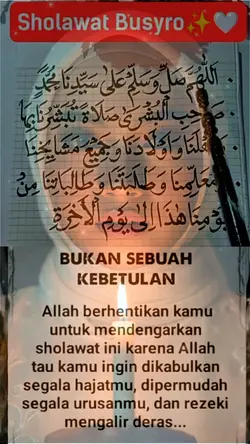 Sholawat Busyro✨🤍
اَللّٰهُمَّ صَلِّ وَسَلِّمْ عَلىٰ سَيِّدِنَا مُحَمَّدٍ
صَاحِبِ الْبُشْرىٰ صَلَاةً تُبَشِّرُنَا بِهَا
وَأَهْلَنَا وَأَوْلَادَنَا وَجَمِيْعَ مَشَايِخِنَا
وَمُعَلِّمِنَا وَطَلَبَتَنَا وَطَالِبَاتِنَا مِنْ
يَوْمِنَا هٰذَا إِلىٰ يَوْمِ الْأٰخِرَةِ
BUKAN SEBUAH
KEBETULAN
Allah berhentikan kamu
untuk mendengarkan
sholawat ini karena Allah
tau kamu ingin dikabulkan
segala hajatmu, dipermudah
segala urusanmu, dan rezeki
mengalir deras...